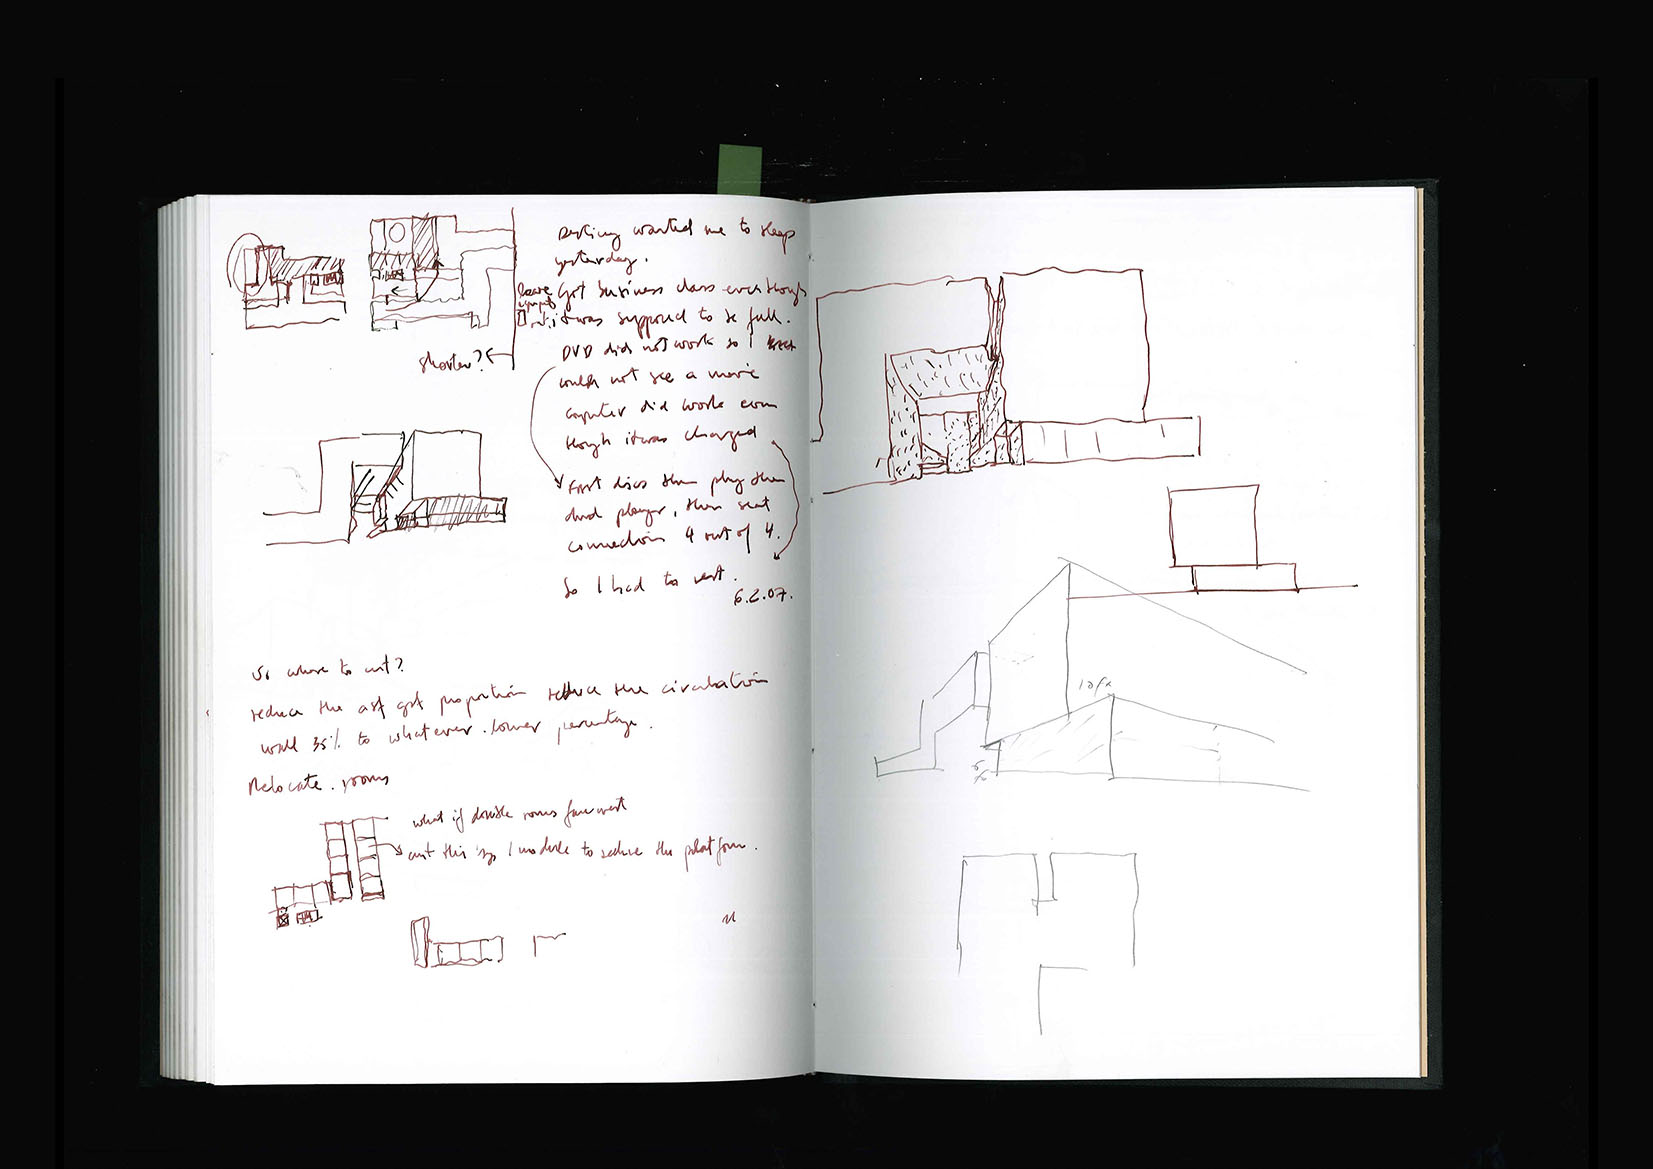 Destiny wanted me to sleep
yesterday.
Got business class even though
it was supposed to be full.
DVD did not work so I
could not see a movie
computer did work even
though it was charged
First discs then play then
dvd player, then seat
connection 4 out of 4.
So I had to rest.
6.2.07.
shorter?
So where to cut?
reduce the proportion reduce the circulation
wall 35% to whatever lower percentage.
Relocate rooms
what if double rooms face west
cut this by 1 module to reduce the platform.